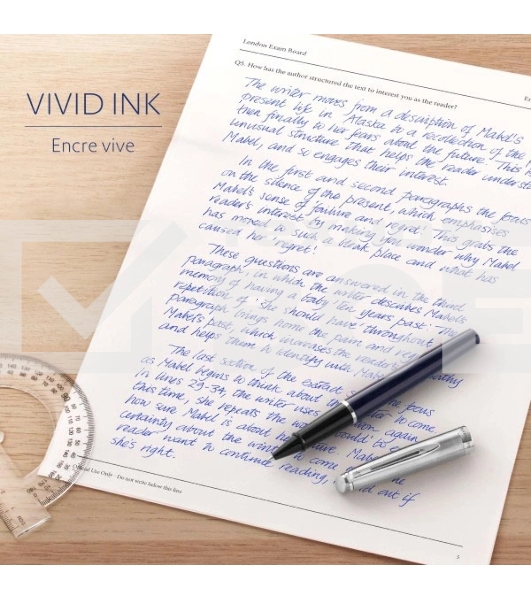 VIVID INK
Encre vive
London Exam Board
Q5. How has the author structured the text to interest you as the reader?
The writer moves from a description of Mabel's
present life in Alaska to a recollection of the
then finally to her fears about the future. This
unusual structure that helps the reader
Mabel, and so engages their interest.
In the first and second paragraphs the focus
on the silence of the present, which emphasises
Mabel's sense of failure and regret. This grabs the
reader's interest by making you wonder why Mabel
has moved to such a bleak place and what has
caused her 'regret'!
These questions are answered in the third
paragraph, in which the writer describes Mabel's
memory of having a baby ten years past. The
repetition of 'she should have' throughout
paragraph brings home the pain and
Mabel's past, which increases the reader's
and helps them to identify with
The last section of the extract, focus
as Mabel begins to think about the to come
In lines 29-34 the writer uses again
this time, she repeats the would' to
how sure Mabel is about
certainty about the to come
reader want to continue reading, find out if
she's right.
Use Only Do not write below this line